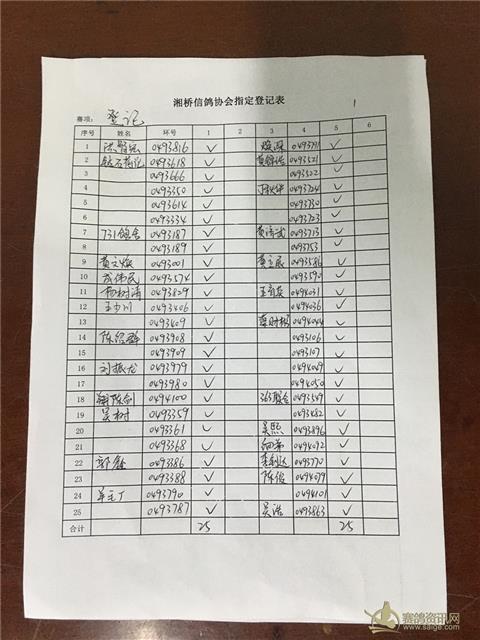 湘桥信鸽协会指定登记表
1
赛项: 登记
序号 姓名 环号 1 2 3 4 5 6
1 0493816 ✓ ✓
2 0493618 ✓ 0493521 ✓
3 0493666 ✓ 0493522 ✓
4 0493350 ✓ 0493724 ✓
5 0493614 ✓ 0493730 ✓
6 0493334 ✓ 0493723 ✓
7 731鸽舍 0493187 ✓ 0493713 ✓
8 0493189 ✓ 0493753 ✓
9 黄文焕 0493001 ✓ 0493586 ✓
10 伟民 0493574 ✓ 0493590 ✓
11 杨树清 0493829 ✓ 0494031 ✓
12 王少川 0493406 ✓ 0494036 ✓
13 0493409 ✓ 0494044 ✓
14 陈绍群 0493908 ✓ 0493106 ✓
15 0493909 ✓ 0493107 ✓
16 刘振龙 0493979 ✓ 0494049 ✓
17 0493980 ✓ 0494050 ✓
18 0494100 ✓ 365联合 0493549 ✓
19 吴树 0493359 ✓ 0493482 ✓
20 0493361 ✓ 吴熙 0493896 ✓
21 0493368 ✓ 0494092 ✓
22 郭鑫 0493386 ✓ 李利达 0493770 ✓
23 0493388 ✓ 陈俊 0494079 ✓
24 0493790 ✓ 0494101 ✓
25 0493787 ✓ 吴浩 0493863 ✓
合计 25 25
赛鸽资讯网
www.saige.com